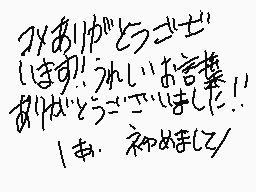 コメありがとうござ
います!!うれしいお言葉
ありがとうございました!!
しあ. 初めまして/